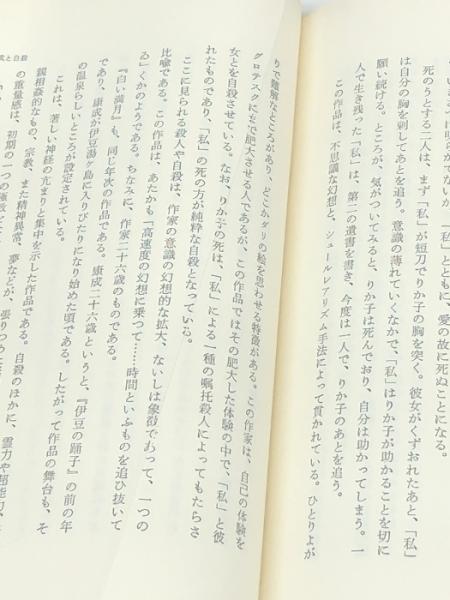 明らかでないが「私」とともに、愛の故に死ぬことになる。
死のうとする二人は、まず「私」が短刀でりか子の胸を突く。彼女がくずおれたあと、「私」
は自分の胸を刺してあとを追う。意識の薄れていくなかで、「私」はりか子が助かることを切に
願い続ける。ところが、気がついてみると、りか子は死んでおり、自分は助かってしまう。一
人で生き残った「私」は、第二の遺書を書き、今度は一人で、りか子のあとを追う。
この作品は、不思議な幻想と、シュールレアリズム手法によって貫かれている。ひとりよが
りで難解なところがあり、どこかダリの絵を思わせる特徴がある。この作家は、自己の体験を
グロテスクにまで肥大させる人であるが、この作品ではその肥大した体験の中で、「私」と彼
女とを自殺させている。なお、りか子の死は、「私」による一種の嘱托殺人によってもたらさ
れたものであり、「私」の死の方が純粋な自殺となっている。
ここに見られる殺人や自殺は、作家の意識の幻想的な拡大、ないしは象徴であって、一つの
比喩である。この作品は、あたかも「高速度の幻想に乗つて……時間といふものを追ひ抜いて
る」くかのようである。ちなみに、作家二十六歳のものである。
『白い満月』も、同じ年次の作品である。康成二十六歳というと、『伊豆の踊子』の前の年
であり、康成が伊豆湯ヶ島に入りびたりになり始めた頃である。したがって作品の舞台も、そ
の温泉らしいところが設定されている。
これは、著しい神経の尖まりと集中を示した作品である。自殺のほかに、霊力や超能力、
親相姦的なもの、宗教、また精神異常、夢などが、張りつめ
の重量感は、初期の一つの極致
と自殺